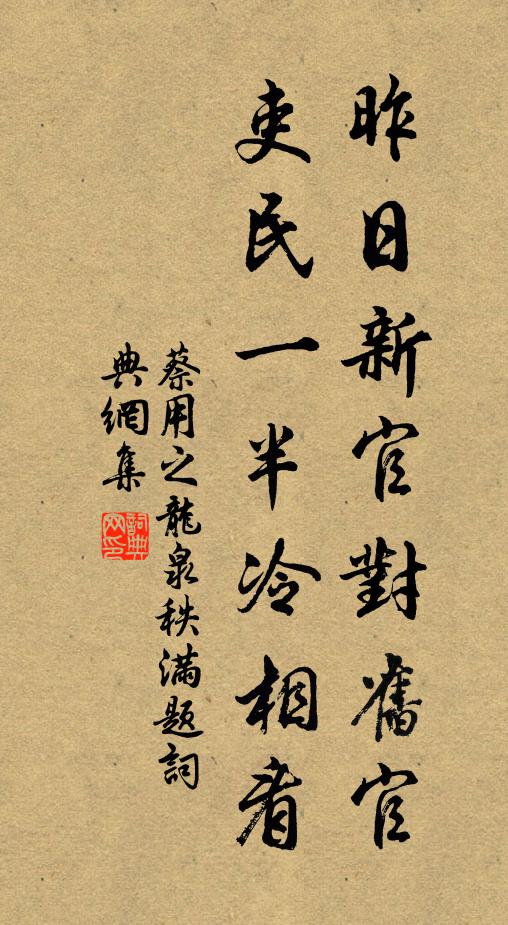 昨日新官對舊官
吏民一半冷相看
蔡用之龍泉秩滿題詞
典網集
詞典网印